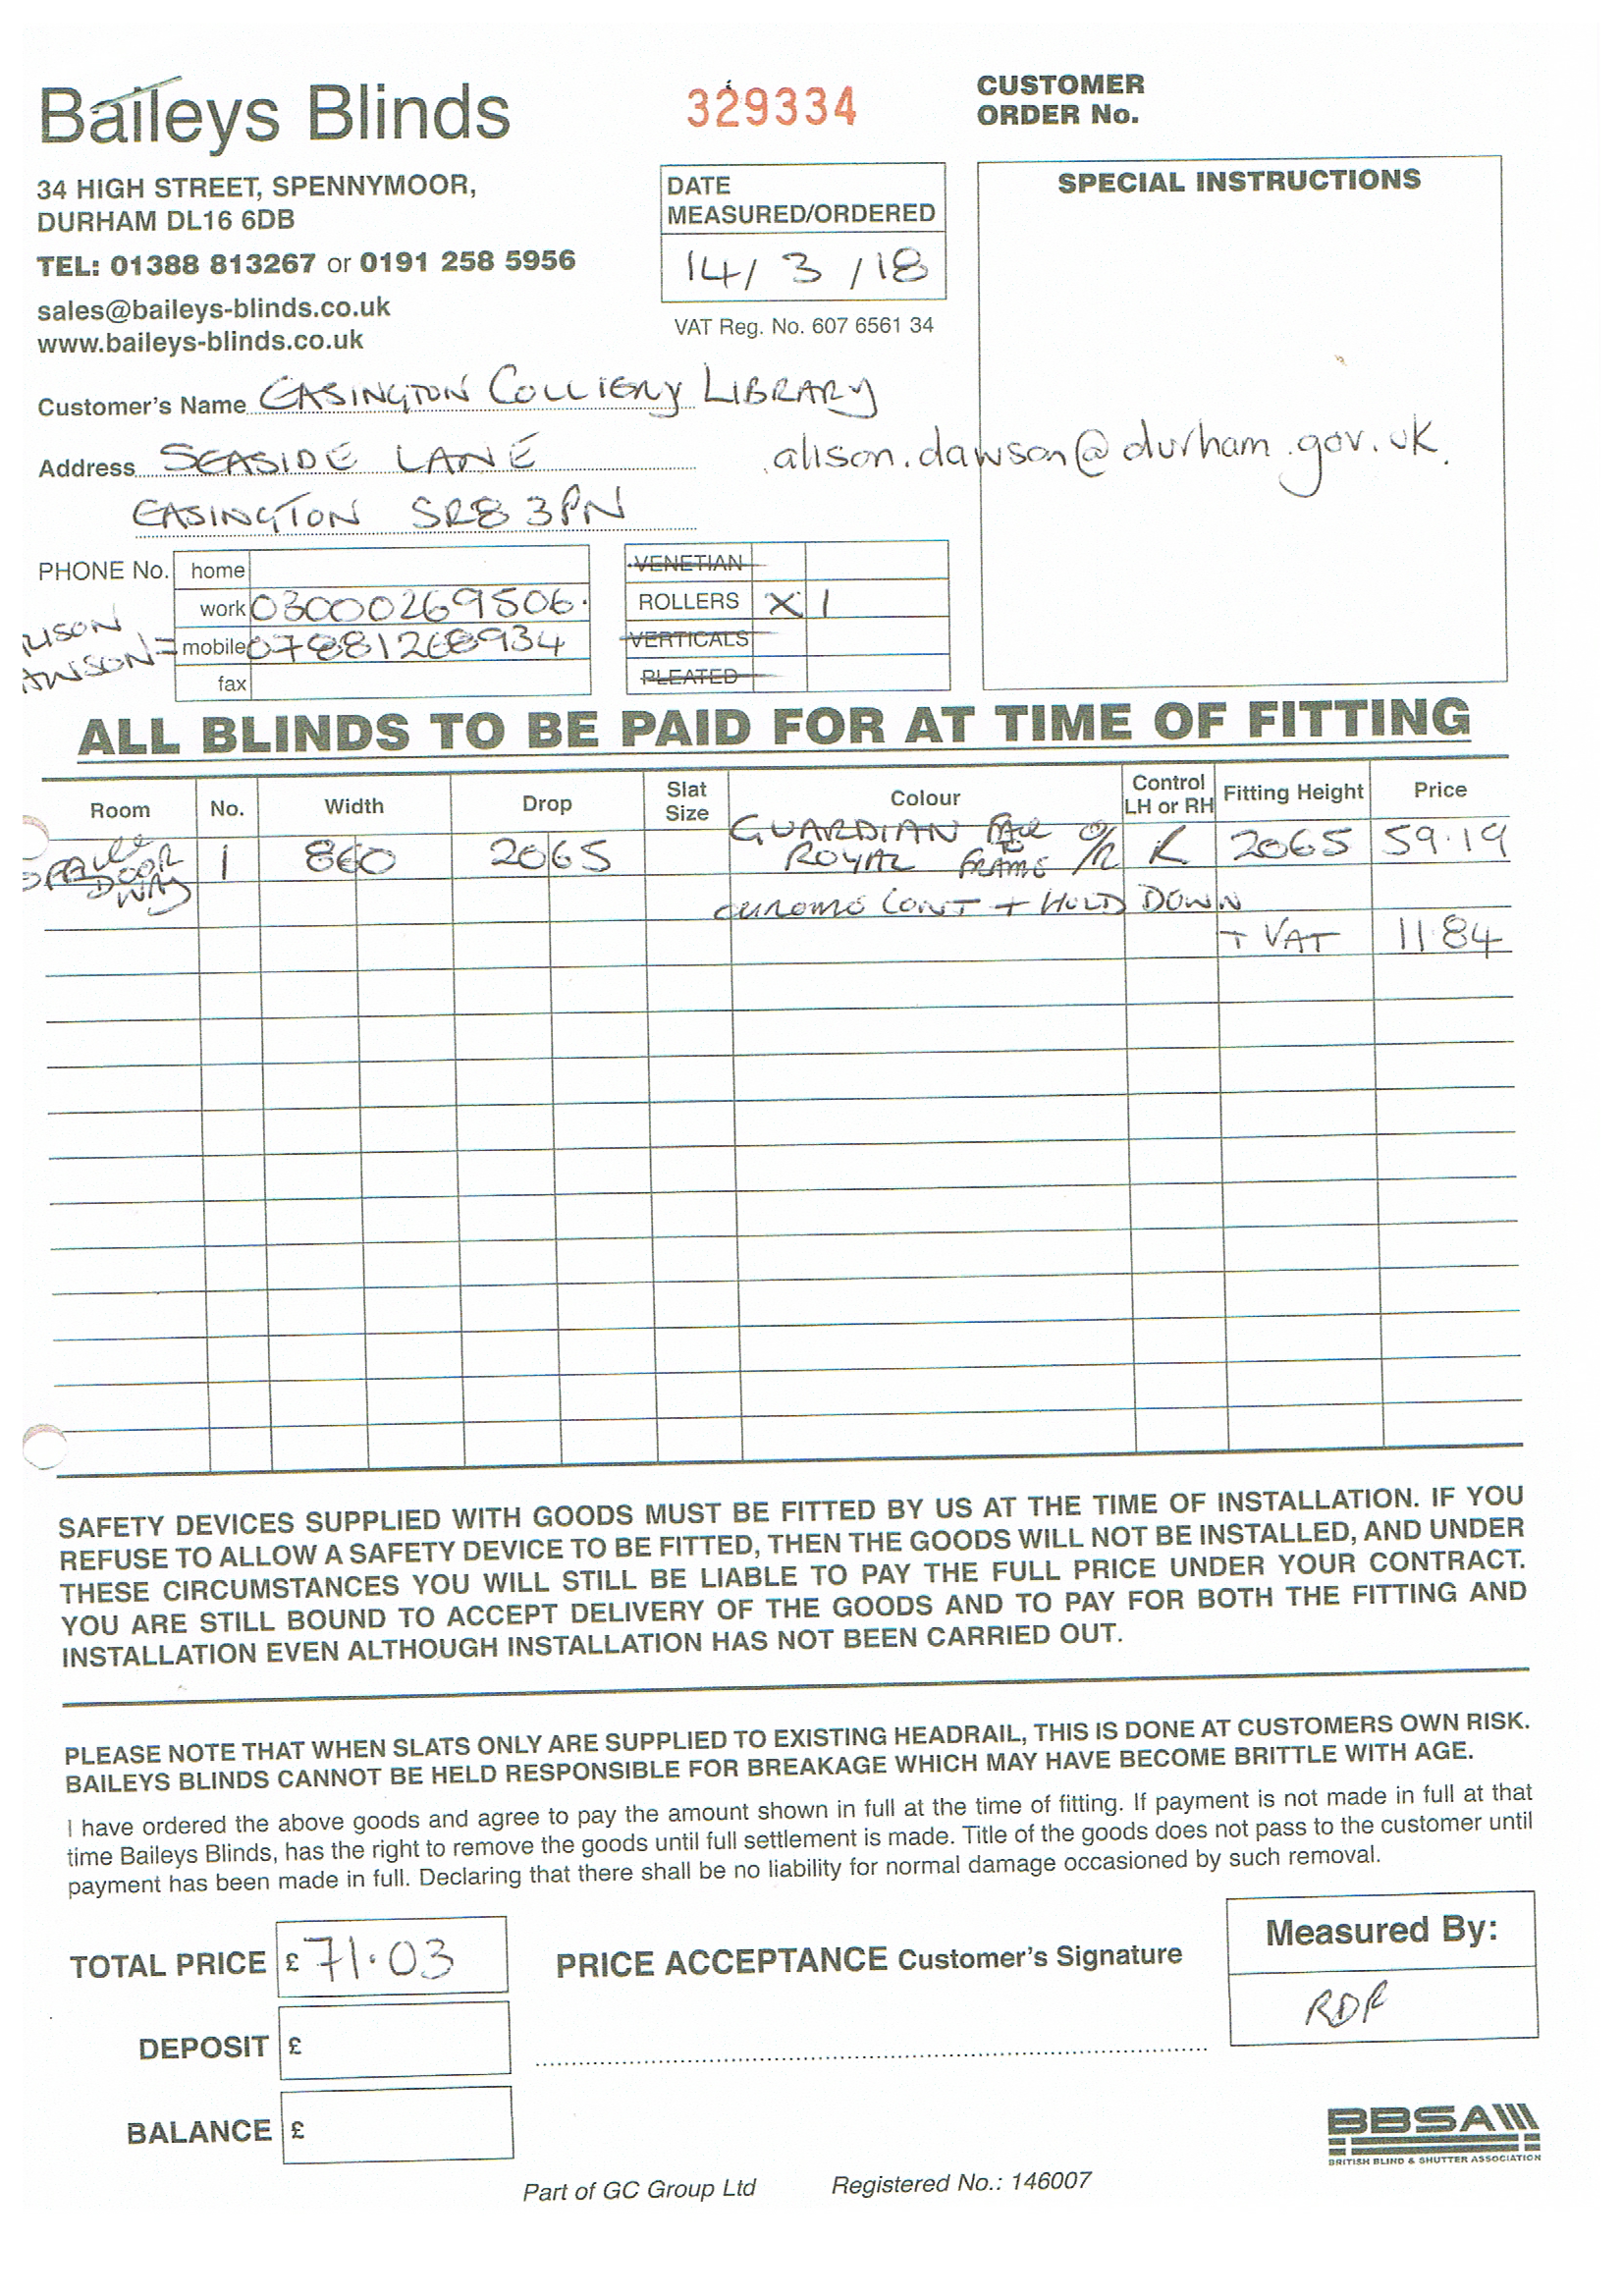 Baileys Blinds
34 HIGH STREET, SPENNYMOOR,
DURHAM DL16 6DB
TEL: 01388 813267 or 0191 258 5956
sales@baileys-blinds.co.uk
www.baileys-blinds.co.uk
329334
DATE
MEASURED/ORDERED
14/3/18
VAT Reg. No. 607 6561 34
CUSTOMER
ORDER No.
SPECIAL INSTRUCTIONS
Customer's Name EASINGTON COLLIERY LIBRARY
Address SEASIDE LANE
alison.dawson@durham.gov.uk.
EASINGTON SR8 3PN
PHONE No. home
work 03000269506.
mobile 07881268934
fax
VENETIAN
ROLLERS X 1
VERTICALS
PLEATED
ALL BLINDS TO BE PAID FOR AT TIME OF FITTING
Room No. Width Drop Slat Size Colour Control LH or RH Fitting Height Price
DOOR WAY 1 860 2065 GUARDIAN ROYAL FACE TO FRAME O/R R 2065 59.19
CHROME CONT + HOLD DOWN
+ VAT 11.84
SAFETY DEVICES SUPPLIED WITH GOODS MUST BE FITTED BY US AT THE TIME OF INSTALLATION. IF YOU
REFUSE TO ALLOW A SAFETY DEVICE TO BE FITTED, THEN THE GOODS WILL NOT BE INSTALLED, AND UNDER
THESE CIRCUMSTANCES YOU WILL STILL BE LIABLE TO PAY THE FULL PRICE UNDER YOUR CONTRACT.
YOU ARE STILL BOUND TO ACCEPT DELIVERY OF THE GOODS AND TO PAY FOR BOTH THE FITTING AND
INSTALLATION EVEN ALTHOUGH INSTALLATION HAS NOT BEEN CARRIED OUT.
PLEASE NOTE THAT WHEN SLATS ONLY ARE SUPPLIED TO EXISTING HEADRAIL, THIS IS DONE AT CUSTOMERS OWN RISK.
BAILEYS BLINDS CANNOT BE HELD RESPONSIBLE FOR BREAKAGE WHICH MAY HAVE BECOME BRITTLE WITH AGE.
I have ordered the above goods and agree to pay the amount shown in full at the time of fitting. If payment is not made in full at that
time Baileys Blinds, has the right to remove the goods until full settlement is made. Title of the goods does not pass to the customer until
payment has been made in full. Declaring that there shall be no liability for normal damage occasioned by such removal.
TOTAL PRICE £71.03
PRICE ACCEPTANCE Customer's Signature
Measured By:
RDR
DEPOSIT £
BALANCE £
BBSA
BRITISH BLIND & SHUTTER ASSOCIATION
Part of GC Group Ltd Registered No.: 146007